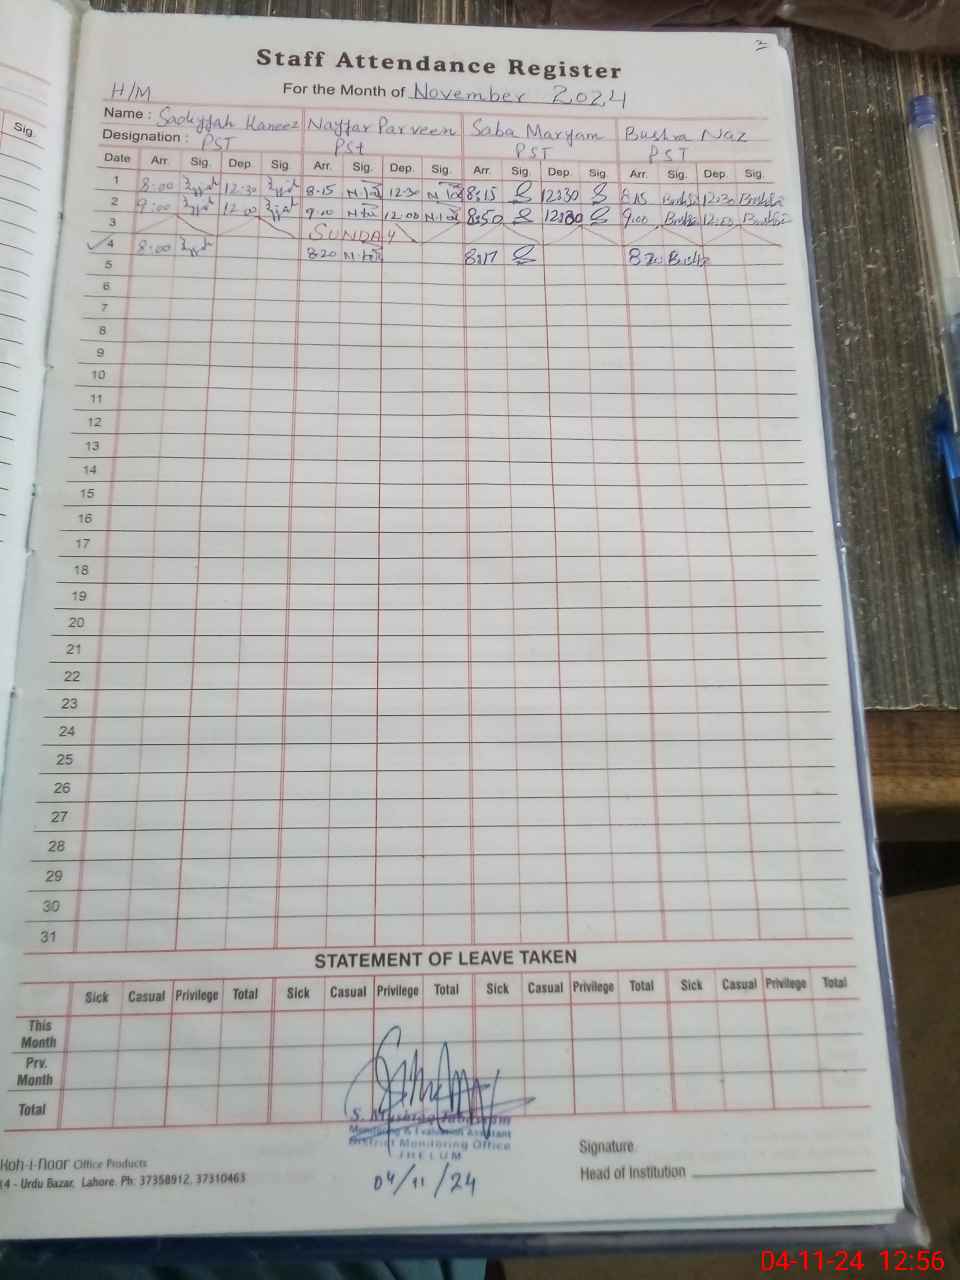 2
Staff Attendance Register
H/M For the Month of November 2024
Sig.
Name : Sadiyyah Kaneez Nayyar Parveen Saba Maryam Bushra Naz
Designation : PST PSt PST PST
Date Arr. Sig. Dep. Sig. Arr. Sig. Dep. Sig. Arr. Sig. Dep. Sig. Arr. Sig. Dep. Sig.
1 8:00 12:30 8-15 12:30 8:15 12:30 8:15 Bushra 12:30 Bushra
2 9:00 12:00 9:00 12:00 8:50 9:00 Bushra 12:00 Bushra
3 SUNDAY
4 8:00 8:20 8:17 8:20 Bushra
5
6
7
8
9
10
11
12
13
14
15
16
17
18
19
20
21
22
23
24
25
26
27
28
29
30
31
STATEMENT OF LEAVE TAKEN
Sick Casual Privilege Total Sick Casual Privilege Total Sick Casual Privilege Total Sick Casual Privilege Total
This Month
Prv. Month
Total
Monitoring & Evaluation Assistant
District Monitoring Office
JHELUM
04/11/24
Signature
Head of Institution
Koh-i-noor Office Products
14 - Urdu Bazar, Lahore. Ph: 37358912, 37310463
04-11-24 12:56